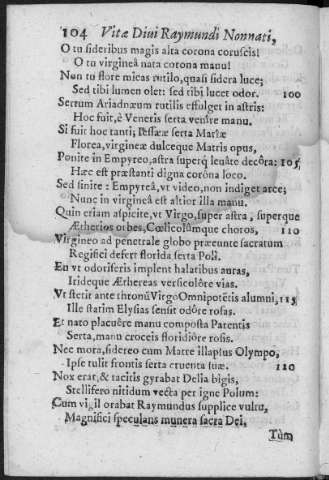 104 Vitæ Diui Raymundi Nonnati,
O tu sideribus magis alta corona coruscis!
O tu virgineâ nata corona manu!
Non tu flore micas rutilo, quasi sidera luce;
Sed tibi lumen olet: sed tibi lucet odor. 100
Sertum Ariadnæum rutilis effulget in astris:
Hoc fuit, è Veneris serta venire manu.
Si fuit hoc tanti; Pessææ serta Mariæ
Florea, virgineæ dulceque Matris opus,
Ponite in Empyreo, astra superq́ leuâte decôra: 105
Hæc est præstanti digna corona loco.
Sed sinite: Empyreâ, vt video, non indiget arce;
Nunc in virgineâ est altior illa manu.
Quin etiam aspicite, vt Virgo, super astra, superque
Ætherios orbes, Cœlicolûmque choros, 110
Virgineo ad penetrale globo præeunte sacratum
Regifici defert florida serta Poli.
En vt odoriferis implent halatibus auras,
Irideque Æthereas versicolôre vias.
Vt stetit ante thronũ Virgo Omnipotẽtis alumni, 115
Ille statim Elysias sensit odôre rosas.
Et nato placuêre manu composta Parentis
Serta, manu croceis floridiôre rosis.
Nec mora, sidereo cum Matre illapsus Olympo,
Ipse tulit frontis serta cruenta suæ. 120
Nox erat, & tacitis gyrabat Delia bigis,
Stellifero nitidum vecta per igne Polum:
Cum vigil orabat Raymundus supplice vultu,
Magnifici speculans munera sacra Dei,
Tùm